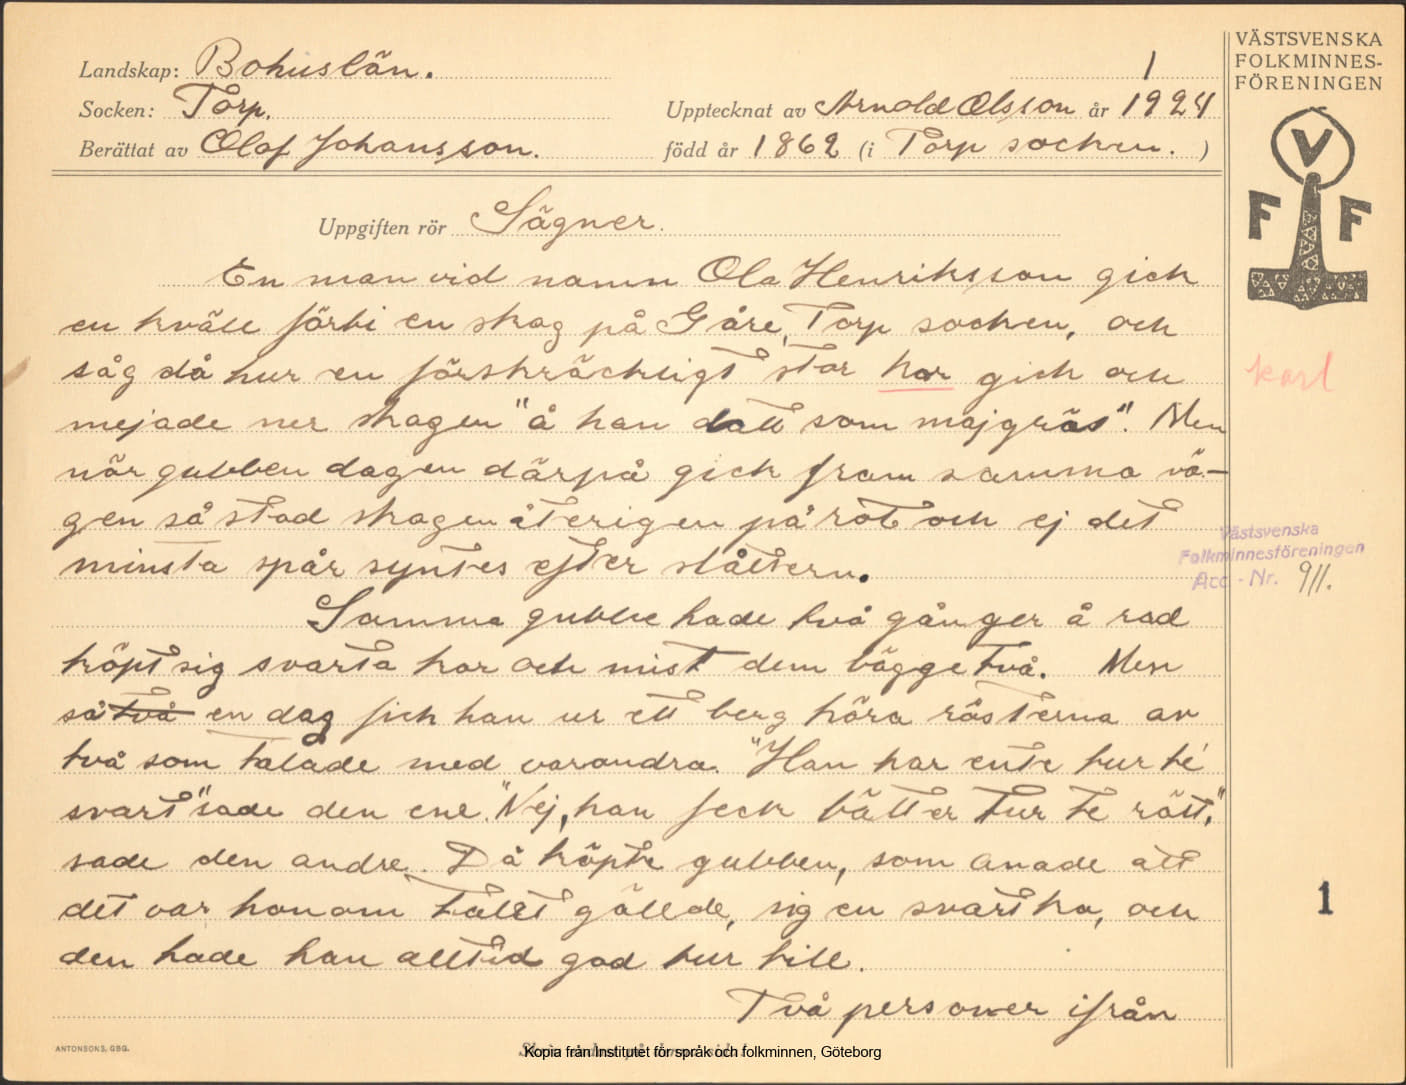 Landskap: Bohuslän.
1
VÄSTSVENSKA
FOLKMINNES-
FÖRENINGEN
Socken: Torp.
Upptecknat av Arnold Olsson år 1924
Berättat av Olof Johansson.
född år 1862 (i Torp socken. )
V
F F
Uppgiften rör Sägner.
En man vid namn Ola Henriksson gick
en kväll förbi en skog på Gåre, Torp socken, och
såg då hur en förskräckligt stor kar gick och
karl
mejade ner skogen "å han datt som majgräs". Men
när gubben dagen därpå gick fram samma vä-
gen så stod skogen återigen på rot och ej det
minsta spår syntes efter slåttern.
Västsvenska
Folkminnesföreningen
Acc - Nr. 911.
Samma gubbe hade två gånger å rad
köpt sig svarta kor och mist dem bägge två. Men
så två en dag fick han ur ett berg höra rösterna av
två som talade med varandra. "Han har ente tur te'
svart" sade den ene. "Nej, han feck bätter tur te rött,"
sade den andre. Då köpte gubben, som anade att
det var honom talet gällde, sig en svart ko, och
den hade han alltid god tur till.
1
Två personer ifrån
ANTONSONS, GBG.
Kopia från Institutet för språk och folkminnen, Göteborg